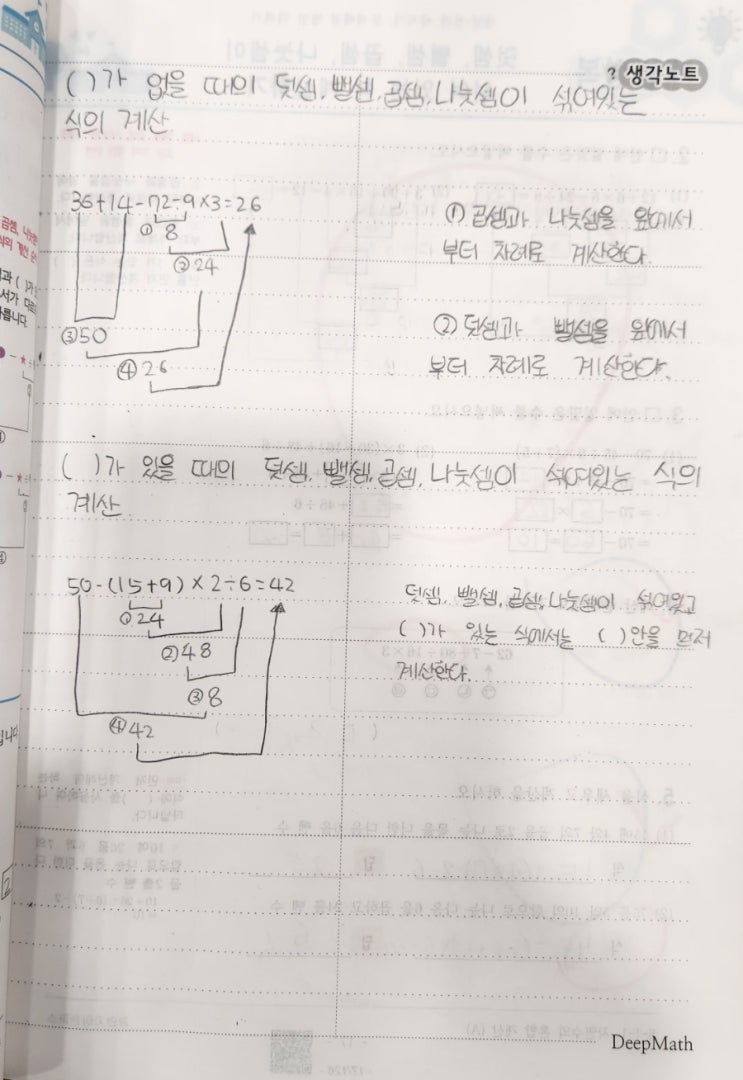 ? 생각노트
( )가 없을 때의 덧셈, 뺄셈, 곱셈, 나눗셈이 섞여있는
식의 계산
36+14-72÷9×3=26
① 8
② 24
③ 50
④ 26
① 곱셈과 나눗셈을 앞에서
부터 차례로 계산한다.
② 덧셈과 뺄셈을 앞에서
부터 차례로 계산한다.
( )가 있을 때의 덧셈, 뺄셈, 곱셈, 나눗셈이 섞여있는 식의
계산
50-(15+9)×2÷6=42
① 24
② 48
③ 8
④ 42
덧셈, 뺄셈, 곱셈, 나눗셈이 섞여있고
( )가 있는 식에서는 ( )안을 먼저
계산한다.
DeepMath